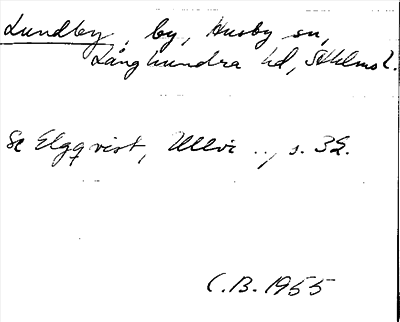 Lundby, by, Husby sn,
Långhundra hd, Sthlms l.
Se Elgqvist, Ullvi .., s. 32.
C.B. 1955